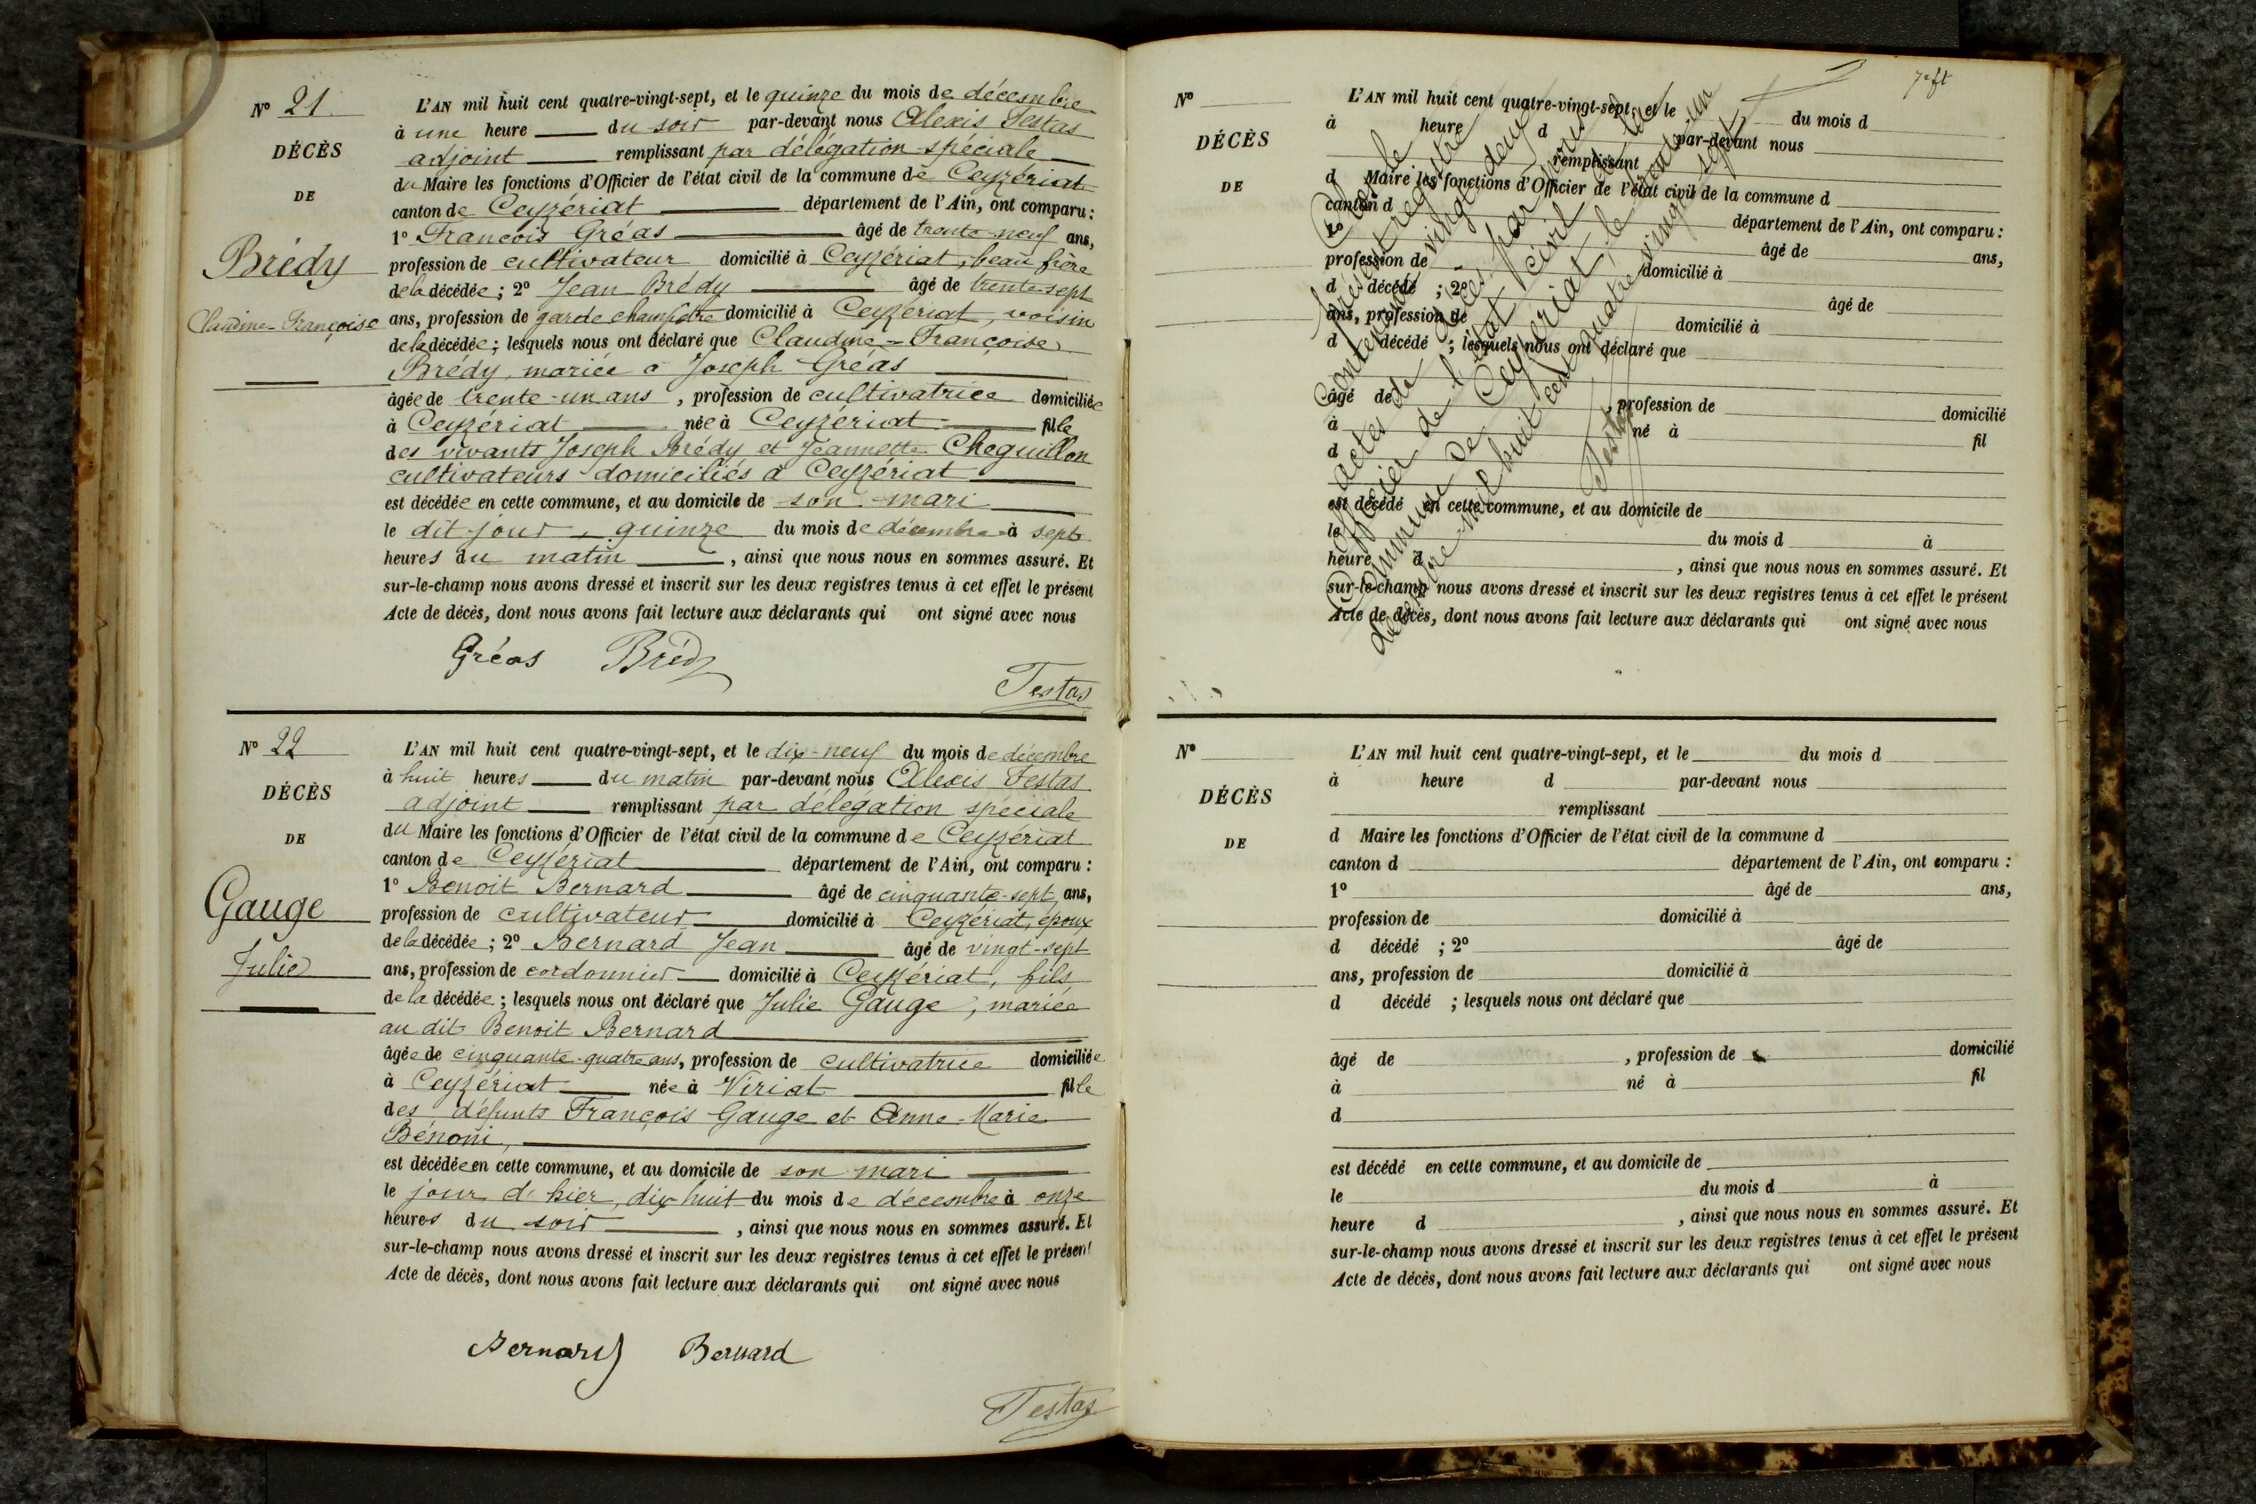 N° 21
DÉCÈS
DE
Brédy
Claudine-Françoise
L'AN mil huit cent quatre-vingt-sept, et le quinze du mois de décembre
à une heure du soir par-devant nous Alexis Testas
adjoint remplissant par délégation spéciale
du Maire les fonctions d'Officier de l'état civil de la commune de Ceyzériat
canton de Ceyzériat département de l'Ain, ont comparu :
1° François Gréas âgé de trente-neuf ans,
profession de cultivateur domicilié à Ceyzériat, beau frère
de la décédée ; 2° Jean Brédy âgé de trente-sept
ans, profession de garde champêtre domicilié à Ceyzériat, voisin
de la décédée ; lesquels nous ont déclaré que Claudine-Françoise
Brédy, mariée à Joseph Gréas
âgée de trente-un ans, profession de cultivatrice domiciliée
à Ceyzériat née à Ceyzériat fille
des vivants Joseph Brédy et Jeannette Cheguillon
cultivateurs domiciliés à Ceyzériat
est décédée en cette commune, et au domicile de son mari
le dit jour, quinze du mois de décembre à sept
heures du matin, ainsi que nous nous en sommes assuré. Et
sur-le-champ nous avons dressé et inscrit sur les deux registres tenus à cet effet le présent
Acte de décès, dont nous avons fait lecture aux déclarants qui ont signé avec nous
Gréas Brédy
Testas
N° 22
DÉCÈS
DE
Gauge
Julie
L'AN mil huit cent quatre-vingt-sept, et le dix-neuf du mois de décembre
à huit heures du matin par-devant nous Alexis Testas
adjoint remplissant par délégation spéciale
du Maire les fonctions d'Officier de l'état civil de la commune de Ceyzériat
canton de Ceyzériat département de l'Ain, ont comparu :
1° Benoit Bernard âgé de cinquante-sept ans,
profession de cultivateur domicilié à Ceyzériat, époux
de la décédée ; 2° Bernard Jean âgé de vingt-sept
ans, profession de cordonnier domicilié à Ceyzériat, fils
de la décédée ; lesquels nous ont déclaré que Julie Gauge, mariée
au dit Benoit Bernard
âgée de cinquante-quatre ans, profession de cultivatrice domiciliée
à Ceyzériat née à Viriat fille
des défunts François Gauge et Anne-Marie
Bénoni,
est décédée en cette commune, et au domicile de son mari
le jour d'hier, dix huit du mois de décembre à onze
heures du soir, ainsi que nous nous en sommes assuré. Et
sur-le-champ nous avons dressé et inscrit sur les deux registres tenus à cet effet le présent
Acte de décès, dont nous avons fait lecture aux déclarants qui ont signé avec nous
Bernard Bernard
Testas
N°
DÉCÈS
DE
L'AN mil huit cent quatre-vingt-sept, et le du mois d
à heure d par-devant nous
remplissant
d Maire les fonctions d'Officier de l'état civil de la commune d
canton d département de l'Ain, ont comparu :
1° âgé de ans,
profession de domicilié à
d décédé ; 2° âgé de
ans, profession de domicilié à
d décédé ; lesquels nous ont déclaré que
âgé de , profession de domicilié
à né à fil
d
est décédé en cette commune, et au domicile de
le du mois d à
heure d , ainsi que nous nous en sommes assuré. Et
sur-le-champ nous avons dressé et inscrit sur les deux registres tenus à cet effet le présent
Acte de décès, dont nous avons fait lecture aux déclarants qui ont signé avec nous
présent registre
contenant vingt deux
actes de décès par nous
officier de l'état civil de la
Commune de Ceyzériat, le trente un
décembre mil huit cent quatre vingt sept
Testas
N°
DÉCÈS
DE
L'AN mil huit cent quatre-vingt-sept, et le du mois d
à heure d par-devant nous
remplissant
d Maire les fonctions d'Officier de l'état civil de la commune d
canton d département de l'Ain, ont comparu :
1° âgé de ans,
profession de domicilié à
d décédé ; 2° âgé de
ans, profession de domicilié à
d décédé ; lesquels nous ont déclaré que
âgé de , profession de domicilié
à né à fil
d
est décédé en cette commune, et au domicile de
le du mois d à
heure d , ainsi que nous nous en sommes assuré. Et
sur-le-champ nous avons dressé et inscrit sur les deux registres tenus à cet effet le présent
Acte de décès, dont nous avons fait lecture aux déclarants qui ont signé avec nous